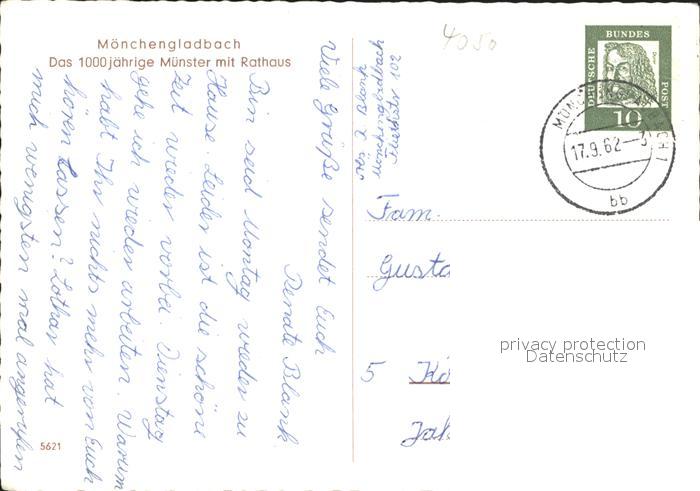 Mönchengladbach
Das 1000jährige Münster mit Rathaus
Viele Grüße sendet Euch
Renate Blank
Bin seid Montag wieder zu
Hause. Leider ist die schöne
Zeit wieder vorbei. Dienstag
gehe ich wieder arbeiten. Warum
habt Ihr nichts mehr von Euch
hören lassen? Lothar hat
mich wenigsten mal angerufen
5621
4050
Mönchengladbach
Fam.
Gusta
5 Kö
Jak
DEUTSCHE
BUNDES
POST
Dürer
10
17.9.62
bb
privacy protection
Datenschutz